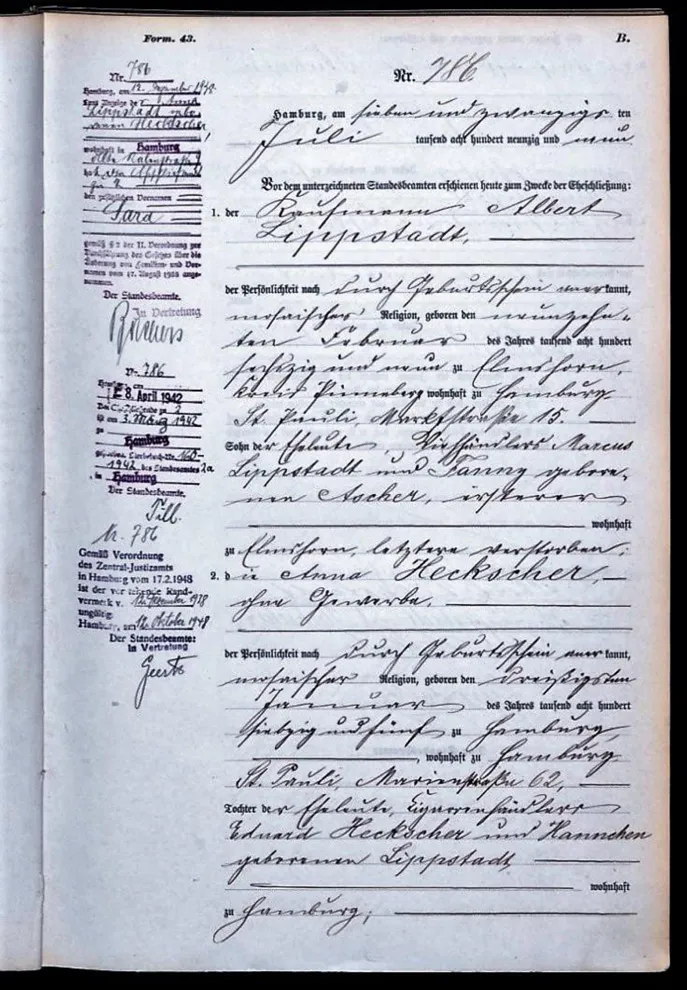 Form. 43.
B.
Nr. 786
Hamburg, am 12. Dezember 1938
Lippstadt gebo-
renen Heckscher,
wohnhaft in Hamburg
den zusätzlichen Vornamen
Sara
gemäß § 2 der II. Verordnung zur
Durchführung des Gesetzes über die
Änderung von Familien- und Vor-
namen vom 17. August 1938 ange-
nommen.
Der Standesbeamte.
In Vertretung
Nr. 786
8. April 1942
Hamburg
1942, des Standesamtes 2a
in Hamburg
Der Standesbeamte.
Till.
N. 786
Gemäß Verordnung
des Zentral-Justizamts
in Hamburg vom 17.2.1948
ist der vorstehende Rand-
vermerk v. 12. Dezember 1938
ungültig.
Hamburg, am 12. Oktober 1948
Der Standesbeamte:
In Vertretung
Geerts
Nr. 786.
Hamburg, am sieben und zwanzigs ten
Juli tausend acht hundert neunzig und neun
Vor dem unterzeichneten Standesbeamten erschienen heute zum Zwecke der Eheschließung:
1. der Kaufmann Albert
Lippstadt,
der Persönlichkeit nach durch Geburtsschein anerkannt,
mosaischer Religion, geboren den neunzehn-
ten Februar des Jahres tausend acht hundert
sechszig und neun zu Elmshorn,
Kreis Pinneberg wohnhaft zu Hamburg
St. Pauli, Marktstraße 15.
Sohn der Eheleute, Viehhändlers Marcus
Lippstadt und Fanny gebore-
nen Ascher, ersterer
wohnhaft
zu Elmshorn, letztere verstorben;
2. die Anna Heckscher,
ohne Gewerbe.
der Persönlichkeit nach durch Geburtsschein anerkannt,
mosaischer Religion, geboren den dreißigsten
Januar des Jahres tausend acht hundert
siebzig und fünf zu Hamburg,
wohnhaft zu Hamburg
St. Pauli, Marienstraße 62,
Tochter der Eheleute, Cigarrenhändlers
Eduard Heckscher und Hannchen
geborenen Lippstadt
wohnhaft
zu Hamburg;